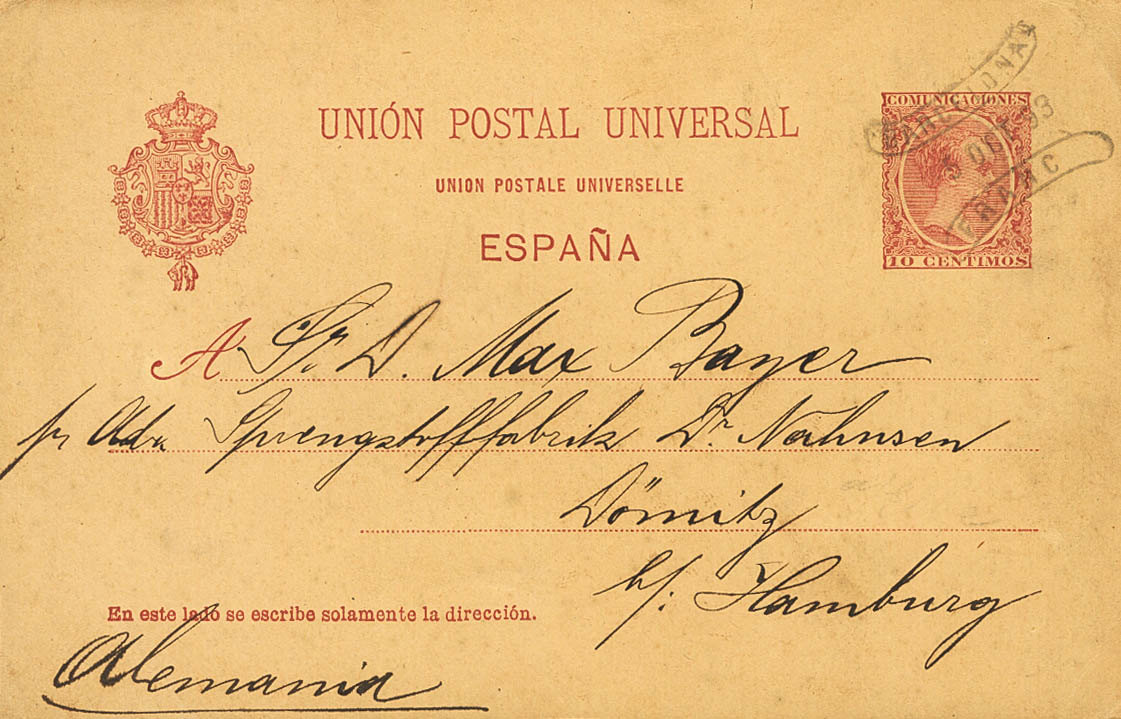 UNIÓN POSTAL UNIVERSAL
UNION POSTALE UNIVERSELLE
ESPAÑA
COMUNICACIONES
10 CENTIMOS
BARCELONA
OCT 93
FRANC
A Sr. D. Max Bayer
pr Adr. Sprengstofffabrik Dr. Nahnsen
Dömitz
b/. Hamburg
En este lado se escribe solamente la dirección.
Alemania